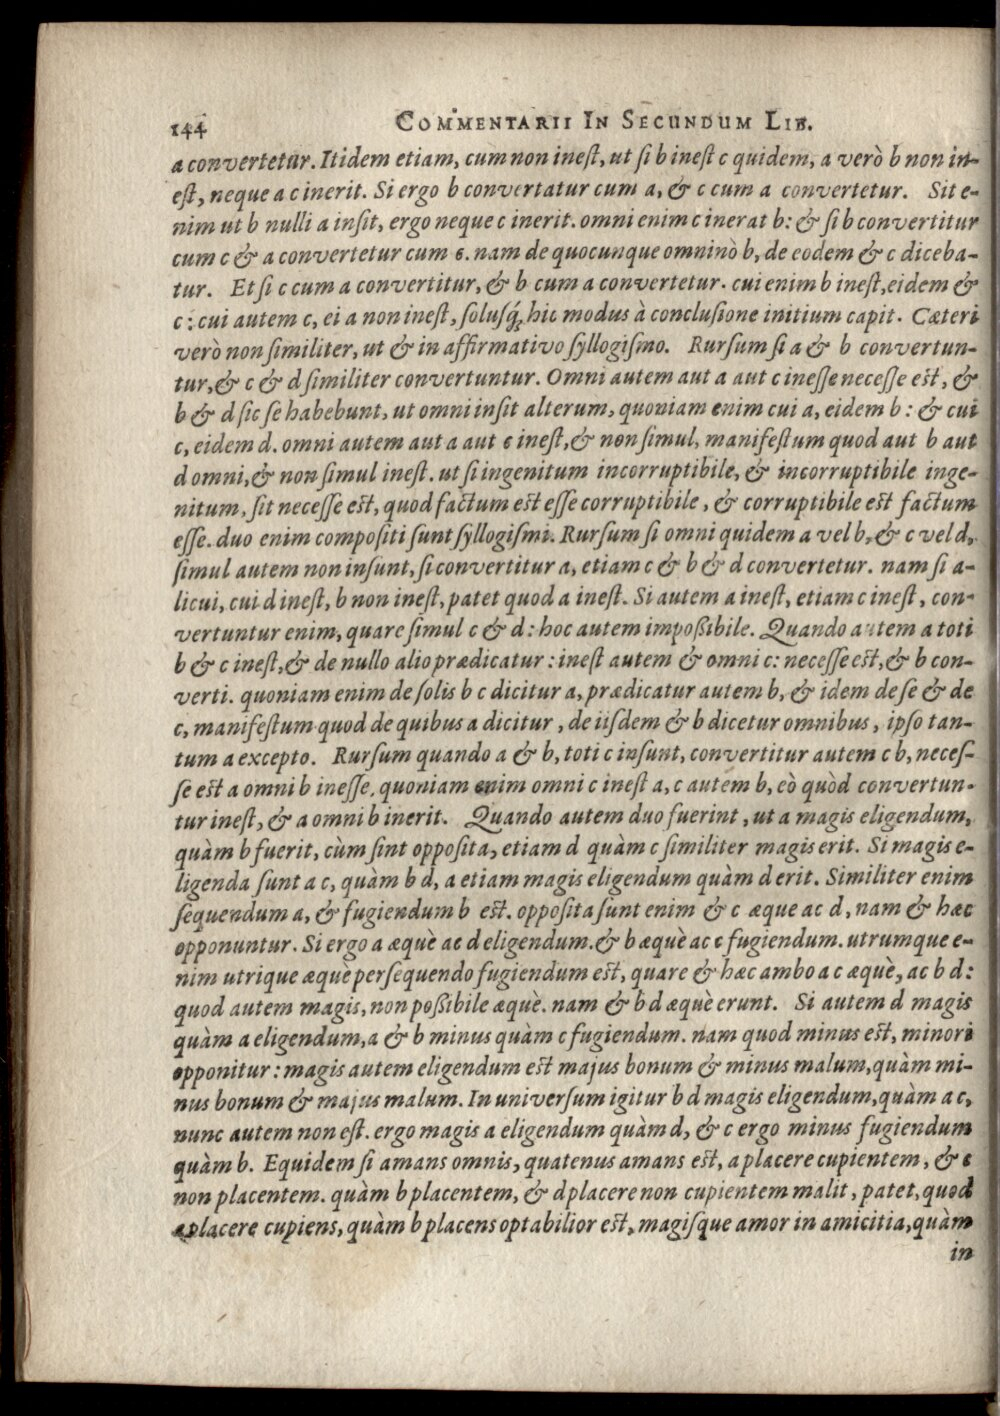 144 COMMENTARII IN SECUNDUM LIB.
a convertetur. Itidem etiam, cum non inest, ut si b inest c quidem, a verò b non in-
est, neque a c inerit. Si ergo b convertatur cum a, & c cum a convertetur. Sit e-
nim ut b nulli a insit, ergo neque c inerit. omni enim c inerat b: & si b convertitur
cum c & a convertetur cum c. nam de quocunque omninò b, de eodem & c diceba-
tur. Et si c cum a convertitur, & b cum a convertetur. cui enim b inest, eidem &
c: cui autem c, ei a non inest, solusq́; hic modus à conclusione initium capit. Cæteri
verò non similiter, ut & in affirmativo syllogismo. Rursum si a & b convertun-
tur, & c & d similiter convertuntur. Omni autem aut a aut c inesse necesse est, &
b & d sic se habebunt, ut omni insit alterum, quoniam enim cui a, eidem b: & cui
c, eidem d. omni autem aut a aut c inest, & non simul, manifestum quod aut b aut
d omni, & non simul inest. ut si ingenitum incorruptibile, & incorruptibile inge-
nitum, sit necesse est, quod factum est esse corruptibile, & corruptibile est factum
esse. duo enim compositi sunt syllogismi. Rursum si omni quidem a vel b, & c vel d,
simul autem non insunt, si convertitur a, etiam c & b & d convertetur. nam si a-
licui, cui d inest, b non inest, patet quod a inest. Si autem a inest, etiam c inest, con-
vertuntur enim, quare simul c & d: hoc autem impoßibile. Quando autem a toti
b & c inest, & de nullo alio prædicatur: inest autem & omni c: necesse est, & b con-
verti. quoniam enim de solis b c dicitur a, prædicatur autem b, & idem de se & de
c, manifestum quod de quibus a dicitur, de iisdem & b dicetur omnibus, ipso tan-
tum a excepto. Rursum quando a & b, toti c insunt, convertitur autem c b, neces-
se est a omni b inesse, quoniam enim omni c inest a, c autem b, eò quòd convertun-
tur inest, & a omni b inerit. Quando autem duo fuerint, ut a magis eligendum,
quàm b fuerit, cùm sint opposita, etiam d quàm c similiter magis erit. Si magis e-
ligenda sunt a c, quàm b d, a etiam magis eligendum quàm d erit. Similiter enim
sequendum a, & fugiendum b est. opposita sunt enim & c æque ac d, nam & hæc
opponuntur. Si ergo a æquè ac d eligendum. & b æquè ac c fugiendum. utrumque e-
nim utrique æque persequendo fugiendum est, quare & hæc ambo a c æquè, ac b d:
quod autem magis, non poßibile æquè. nam & b d æquè erunt. Si autem d magis
quàm a eligendum, a & b minus quàm c fugiendum. nam quod minus est, minori
opponitur: magis autem eligendum est majus bonum & minus malum, quàm mi-
nus bonum & majus malum. In universum igitur b d magis eligendum, quàm a c,
nunc autem non est. ergo magis a eligendum quàm d, & c ergo minus fugiendum
quàm b. Equidem si amans omnis, quatenus amans est, a placere cupientem, & c
non placentem. quàm b placentem, & d placere non cupientem malit, patet, quod
a placere cupiens, quàm b placens optabilior est, magisque amor in amicitia, quàm
in